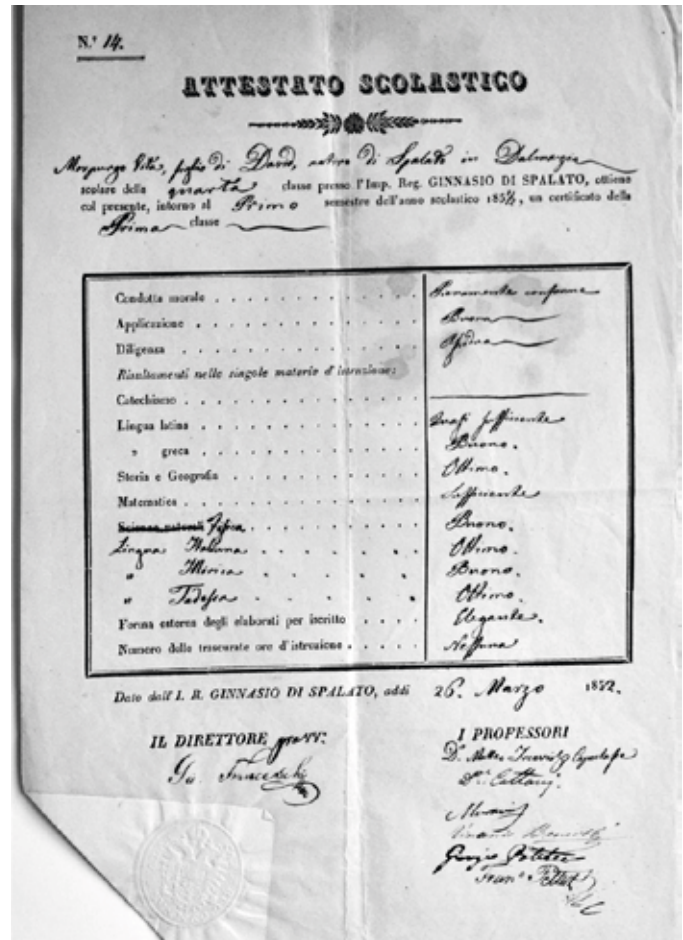 N.º 14.
ATTESTATO SCOLASTICO
Morpurgo Vita, figlio di David, nativo di Spalato in Dalmazia
scolare della quarta classe presso l'Imp. Reg. GINNASIO DI SPALATO, ottiene
col presente, intorno al Primo semestre dell'anno scolastico 185½, un certificato della
Prima classe
Condotta morale . . . . . . . . . . . . Pienamente conforme
Applicazione . . . . . . . . . . . . Buona
Diligenza . . . . . . . . . . . . Assidua
Risultamenti nelle singole materie d'istruzione:
Catechismo . . . . . . . . . . . .
Lingua latina . . . . . . . . . . . . Quasi sufficiente
" greca . . . . . . . . . . . . Buono.
Storia e Geografia . . . . . . . . . . . . Ottimo.
Matematica . . . . . . . . . . . . Sufficiente
Scienze naturali Fisica . . . . . . . . . . Buono.
Lingua Italiana . . . . . . Ottimo.
" Illirica . . . . . . Buono.
" Tedesca . . . . . . Ottimo.
Forma esterna degli elaborati per iscritto . . . . Elegante.
Numero delle trascurate ore d'istruzione . . . . . Nessuna
Dato dall'I. R. GINNASIO DI SPALATO, addì 26. Marzo 1852.
IL DIRETTORE provv.
I PROFESSORI
Franceschi
D.r Cattani